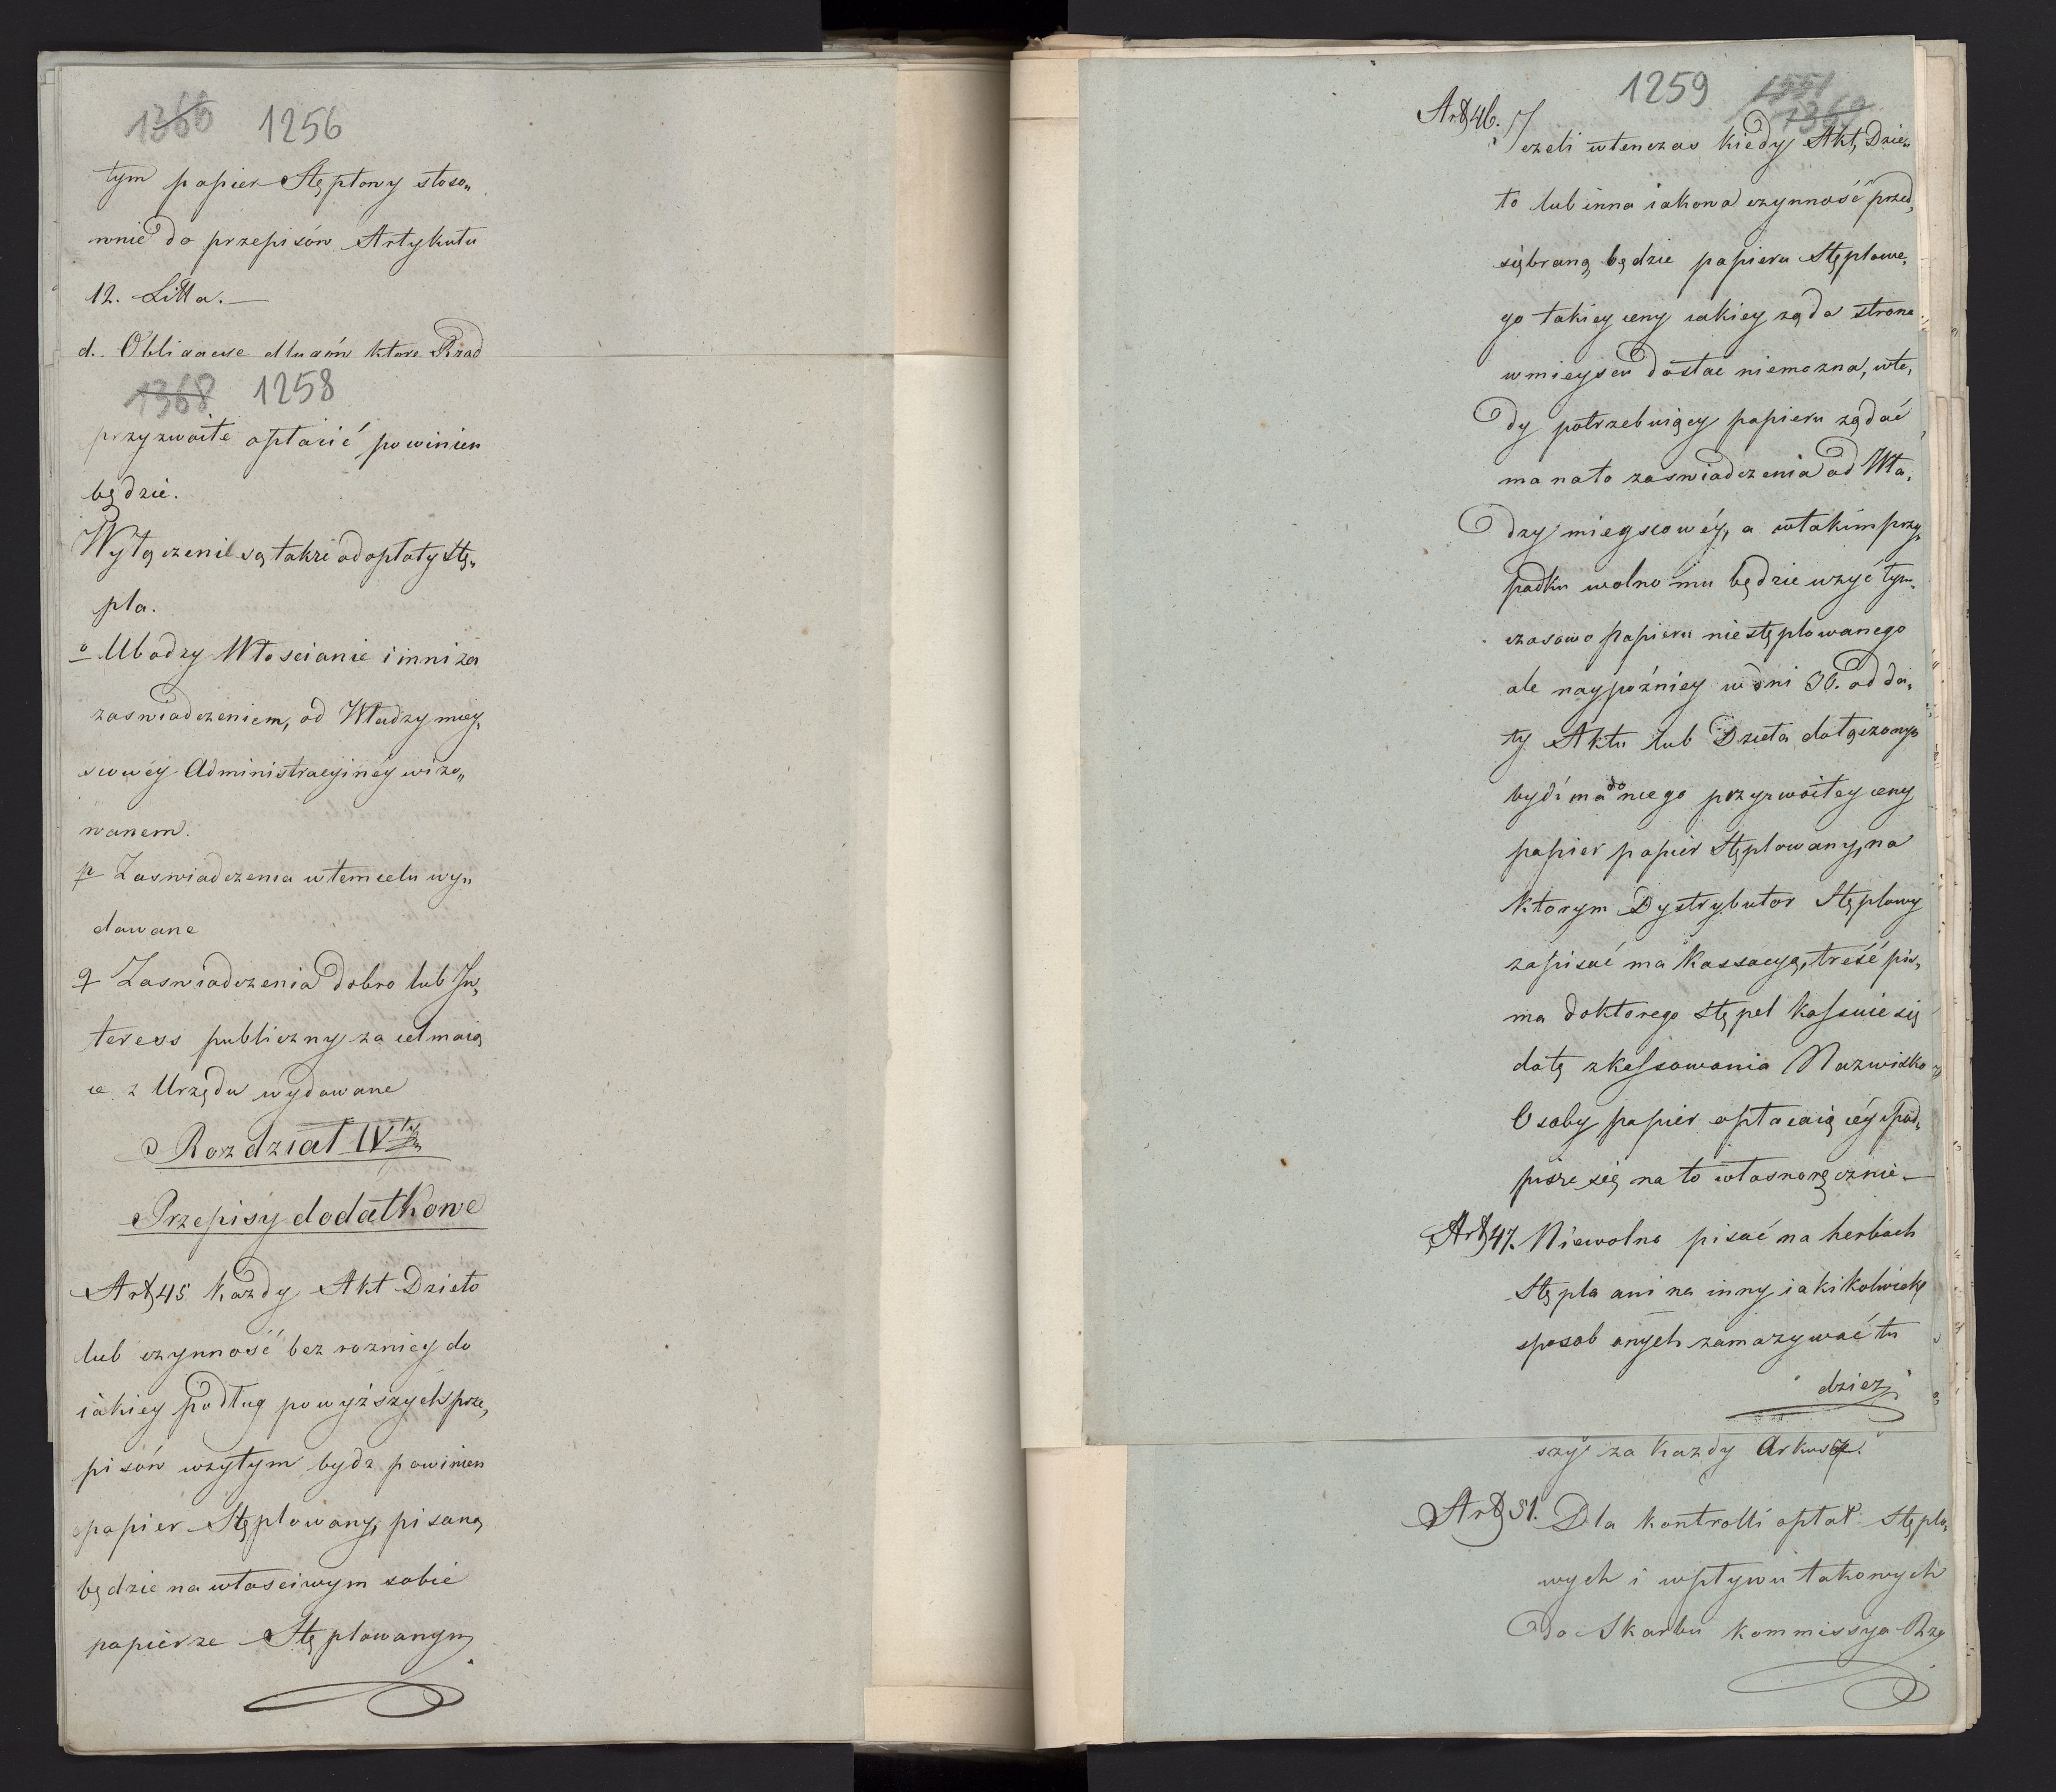 1360 1256
tym papier Stęplowy stoso„
wnie do przepisów Artykułu
12. Litta.—
d. Obligacye długów które Rząd
1368 1258
przyzwoite opłacić powinien
będzie.
Wyłączenie są takze od opłaty Stę„
pla.
o Ubodzy Włoscianie i inni za
zaswiadczeniem, od Władzy miey„
scowéy Administracyinéy wizo„
wanem.
p Zaswiadczenia w tem celu wy„
dawane
q Zaswiadczenia dobro lub In„
teress publiczny za cel maią
ce z Urzędu wydawane
Rozdział IVty
Przepisy dodatkowe
Art 45 Każdy Akt Dzieło
lub czynność bez roznicy do
iakiey podług powyższych prze„
pisów użytym bydz powinien
papier Stęplowany, pisaną
będzie na właściwym sobie
papierze Stęplowanym
1259 1551
1369
Art 46. Jezeli wtenczas kiedy Akt, Dzie„
ło lub inna iakowa czynność przed„
siębraną będzie papieru Stęplowe„
go takiey ceny iakiey ząda strona
w mieyscu dostać niemozna, wte„
dy potrzebuiący papieru ządać
ma na to zaswiadczenia od Wła„
dzy mieyscowéy, a w takim przy„
padku wolno mu będzie uzyć tym„
czasowo papieru niestęplowanego
ale naypóźniey w dni 30. od da„
ty Aktu lub Dzieła dołączonym
bydź ma do niego przyzwoitey ceny
papier papier Stęplowany, na
ktorym Dystrybutor Stęplowy
zapisać ma Kassacyą, treść pis„
ma do ktorego stępel kassuie się
datę zkassowania Nazwisko
Osoby papier opłacaiącéy i pod„
pisze się na to własnoręcznie—
Art 47. Niewolno pisać na herbach
Stępla ani na inny iakikolwiek
sposob onych zamazywać tu
dziez
szy za kazdy Arkusz.
Art 51. Dla kontrolli opłat Stęplo„
wych i wpływu takowych
do Skarbu Kommissya Rzą